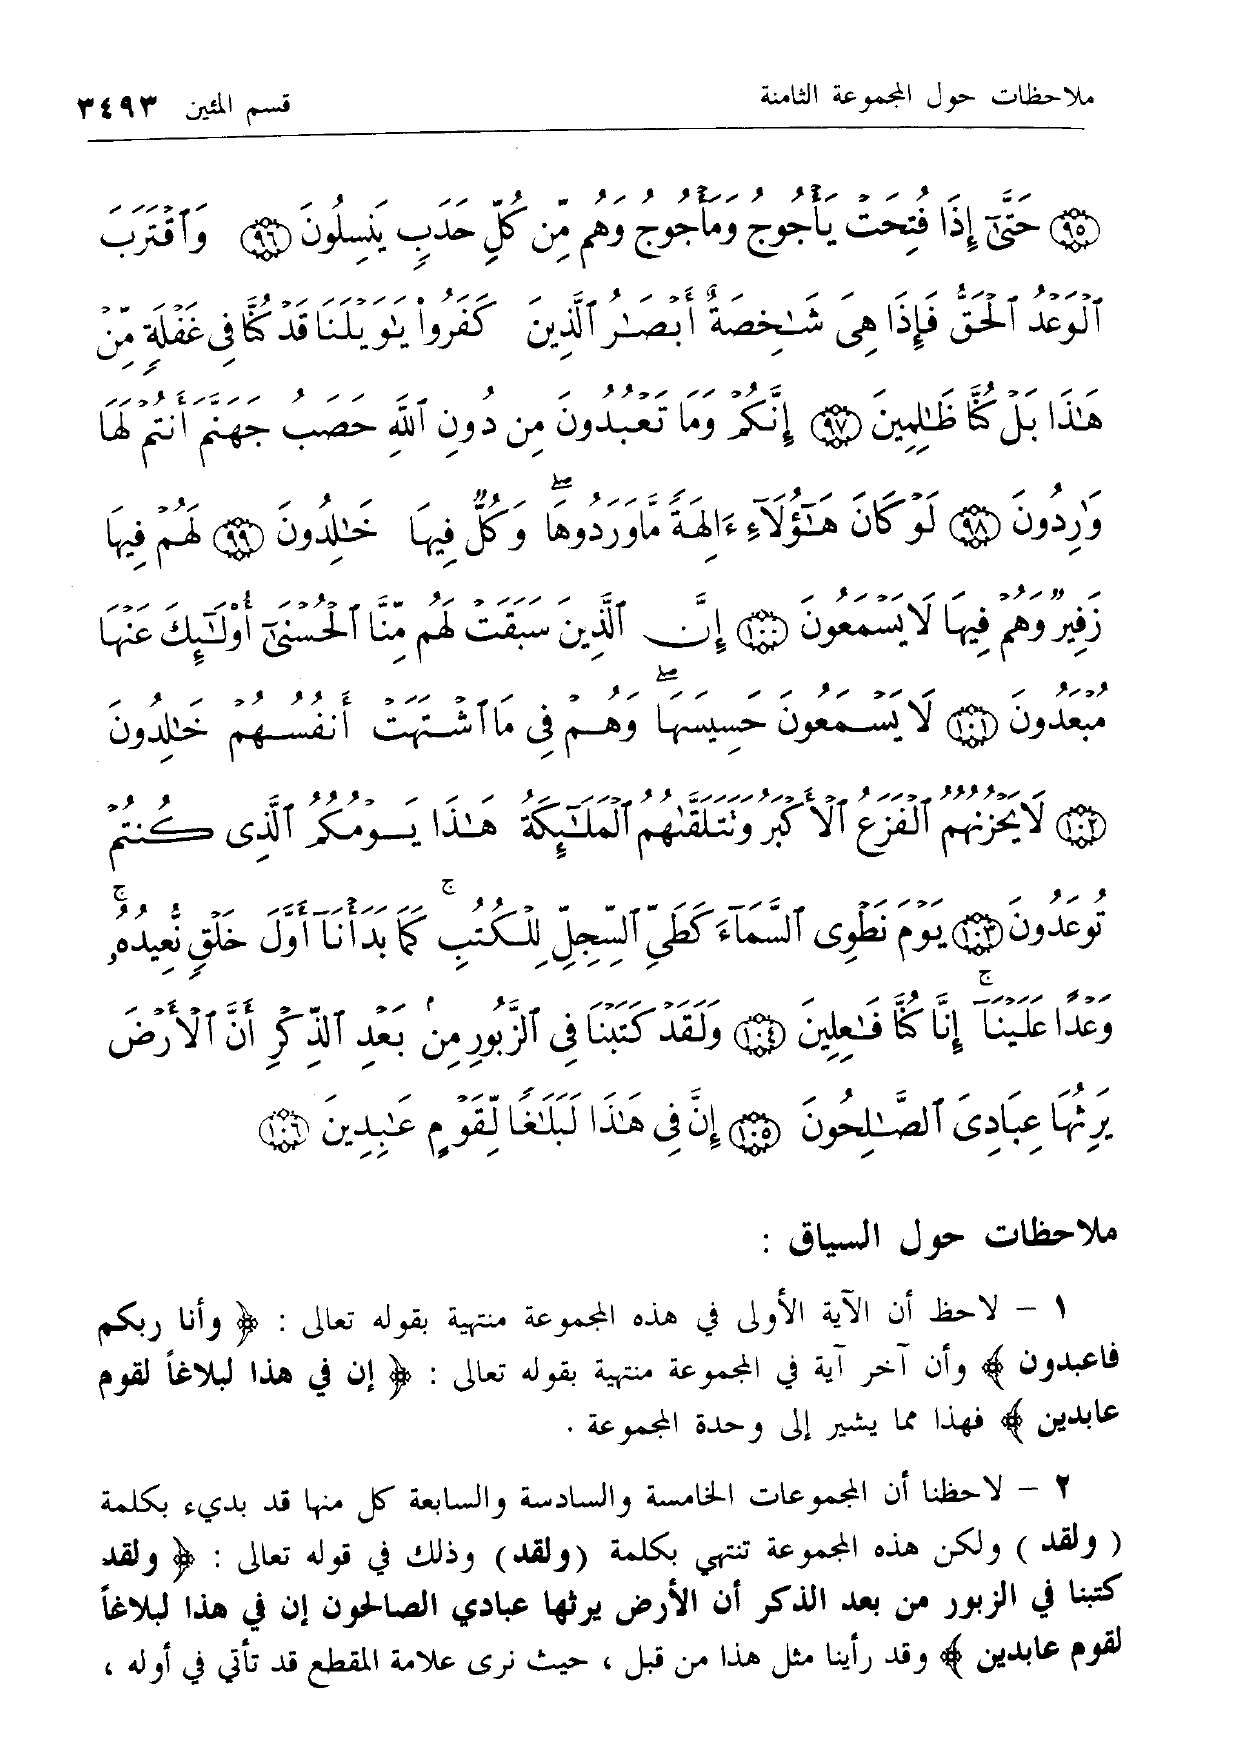 ملاحظات حول المجموعة الثامنة قسم المئين ٣٤٩٣
۝٩٥ حَتَّىٰٓ إِذَا فُتِحَتْ يَأْجُوجُ وَمَأْجُوجُ وَهُم مِّن كُلِّ حَدَبٍ يَنسِلُونَ ۝٩٦ وَٱقْتَرَبَ
ٱلْوَعْدُ ٱلْحَقُّ فَإِذَا هِىَ شَـٰخِصَةٌ أَبْصَـٰرُ ٱلَّذِينَ كَفَرُوا۟ يَـٰوَيْلَنَا قَدْ كُنَّا فِى غَفْلَةٍ مِّنْ
هَـٰذَا بَلْ كُنَّا ظَـٰلِمِينَ ۝٩٧ إِنَّكُمْ وَمَا تَعْبُدُونَ مِن دُونِ ٱللَّهِ حَصَبُ جَهَنَّمَ أَنتُمْ لَهَا
وَٰرِدُونَ ۝٩٨ لَوْ كَانَ هَـٰٓؤُلَآءِ ءَالِهَةً مَّا وَرَدُوهَا ۖ وَكُلٌّ فِيهَا خَـٰلِدُونَ ۝٩٩ لَهُمْ فِيهَا
زَفِيرٌ وَهُمْ فِيهَا لَا يَسْمَعُونَ ۝١٠٠ إِنَّ ٱلَّذِينَ سَبَقَتْ لَهُم مِّنَّا ٱلْحُسْنَىٰٓ أُو۟لَـٰٓئِكَ عَنْهَا
مُبْعَدُونَ ۝١٠١ لَا يَسْمَعُونَ حَسِيسَهَا ۖ وَهُمْ فِى مَا ٱشْتَهَتْ أَنفُسُهُمْ خَـٰلِدُونَ
۝١٠٢ لَا يَحْزُنُهُمُ ٱلْفَزَعُ ٱلْأَكْبَرُ وَتَتَلَقَّىٰهُمُ ٱلْمَلَـٰٓئِكَةُ هَـٰذَا يَوْمُكُمُ ٱلَّذِى كُنتُمْ
تُوعَدُونَ ۝١٠٣ يَوْمَ نَطْوِى ٱلسَّمَآءَ كَطَىِّ ٱلسِّجِلِّ لِلْكُتُبِ ۚ كَمَا بَدَأْنَآ أَوَّلَ خَلْقٍ نُّعِيدُهُۥ ۚ
وَعْدًا عَلَيْنَآ ۚ إِنَّا كُنَّا فَـٰعِلِينَ ۝١٠٤ وَلَقَدْ كَتَبْنَا فِى ٱلزَّبُورِ مِنۢ بَعْدِ ٱلذِّكْرِ أَنَّ ٱلْأَرْضَ
يَرِثُهَا عِبَادِىَ ٱلصَّـٰلِحُونَ ۝١٠٥ إِنَّ فِى هَـٰذَا لَبَلَـٰغًا لِّقَوْمٍ عَـٰبِدِينَ ۝١٠٦
ملاحظات حول السياق :
١ – لاحظ أن الآية الأولى في هذه المجموعة منتهية بقوله تعالى : ﴿ وأنا ربكم
فاعبدون ﴾ وأن آخر آية في المجموعة منتهية بقوله تعالى : ﴿ إن في هذا لبلاغاً لقوم
عابدين ﴾ فهذا مما يشير إلى وحدة المجموعة .
٢ – لاحظنا أن المجموعات الخامسة والسادسة والسابعة كل منها قد بديء بكلمة
( ولقد ) ولكن هذه المجموعة تنتهي بكلمة (ولقد) وذلك في قوله تعالى : ﴿ ولقد
كتبنا في الزبور من بعد الذكر أن الأرض يرثها عبادي الصالحون إن في هذا لبلاغاً
لقوم عابدين ﴾ وقد رأينا مثل هذا من قبل ، حيث نرى علامة المقطع قد تأتي في أوله ،